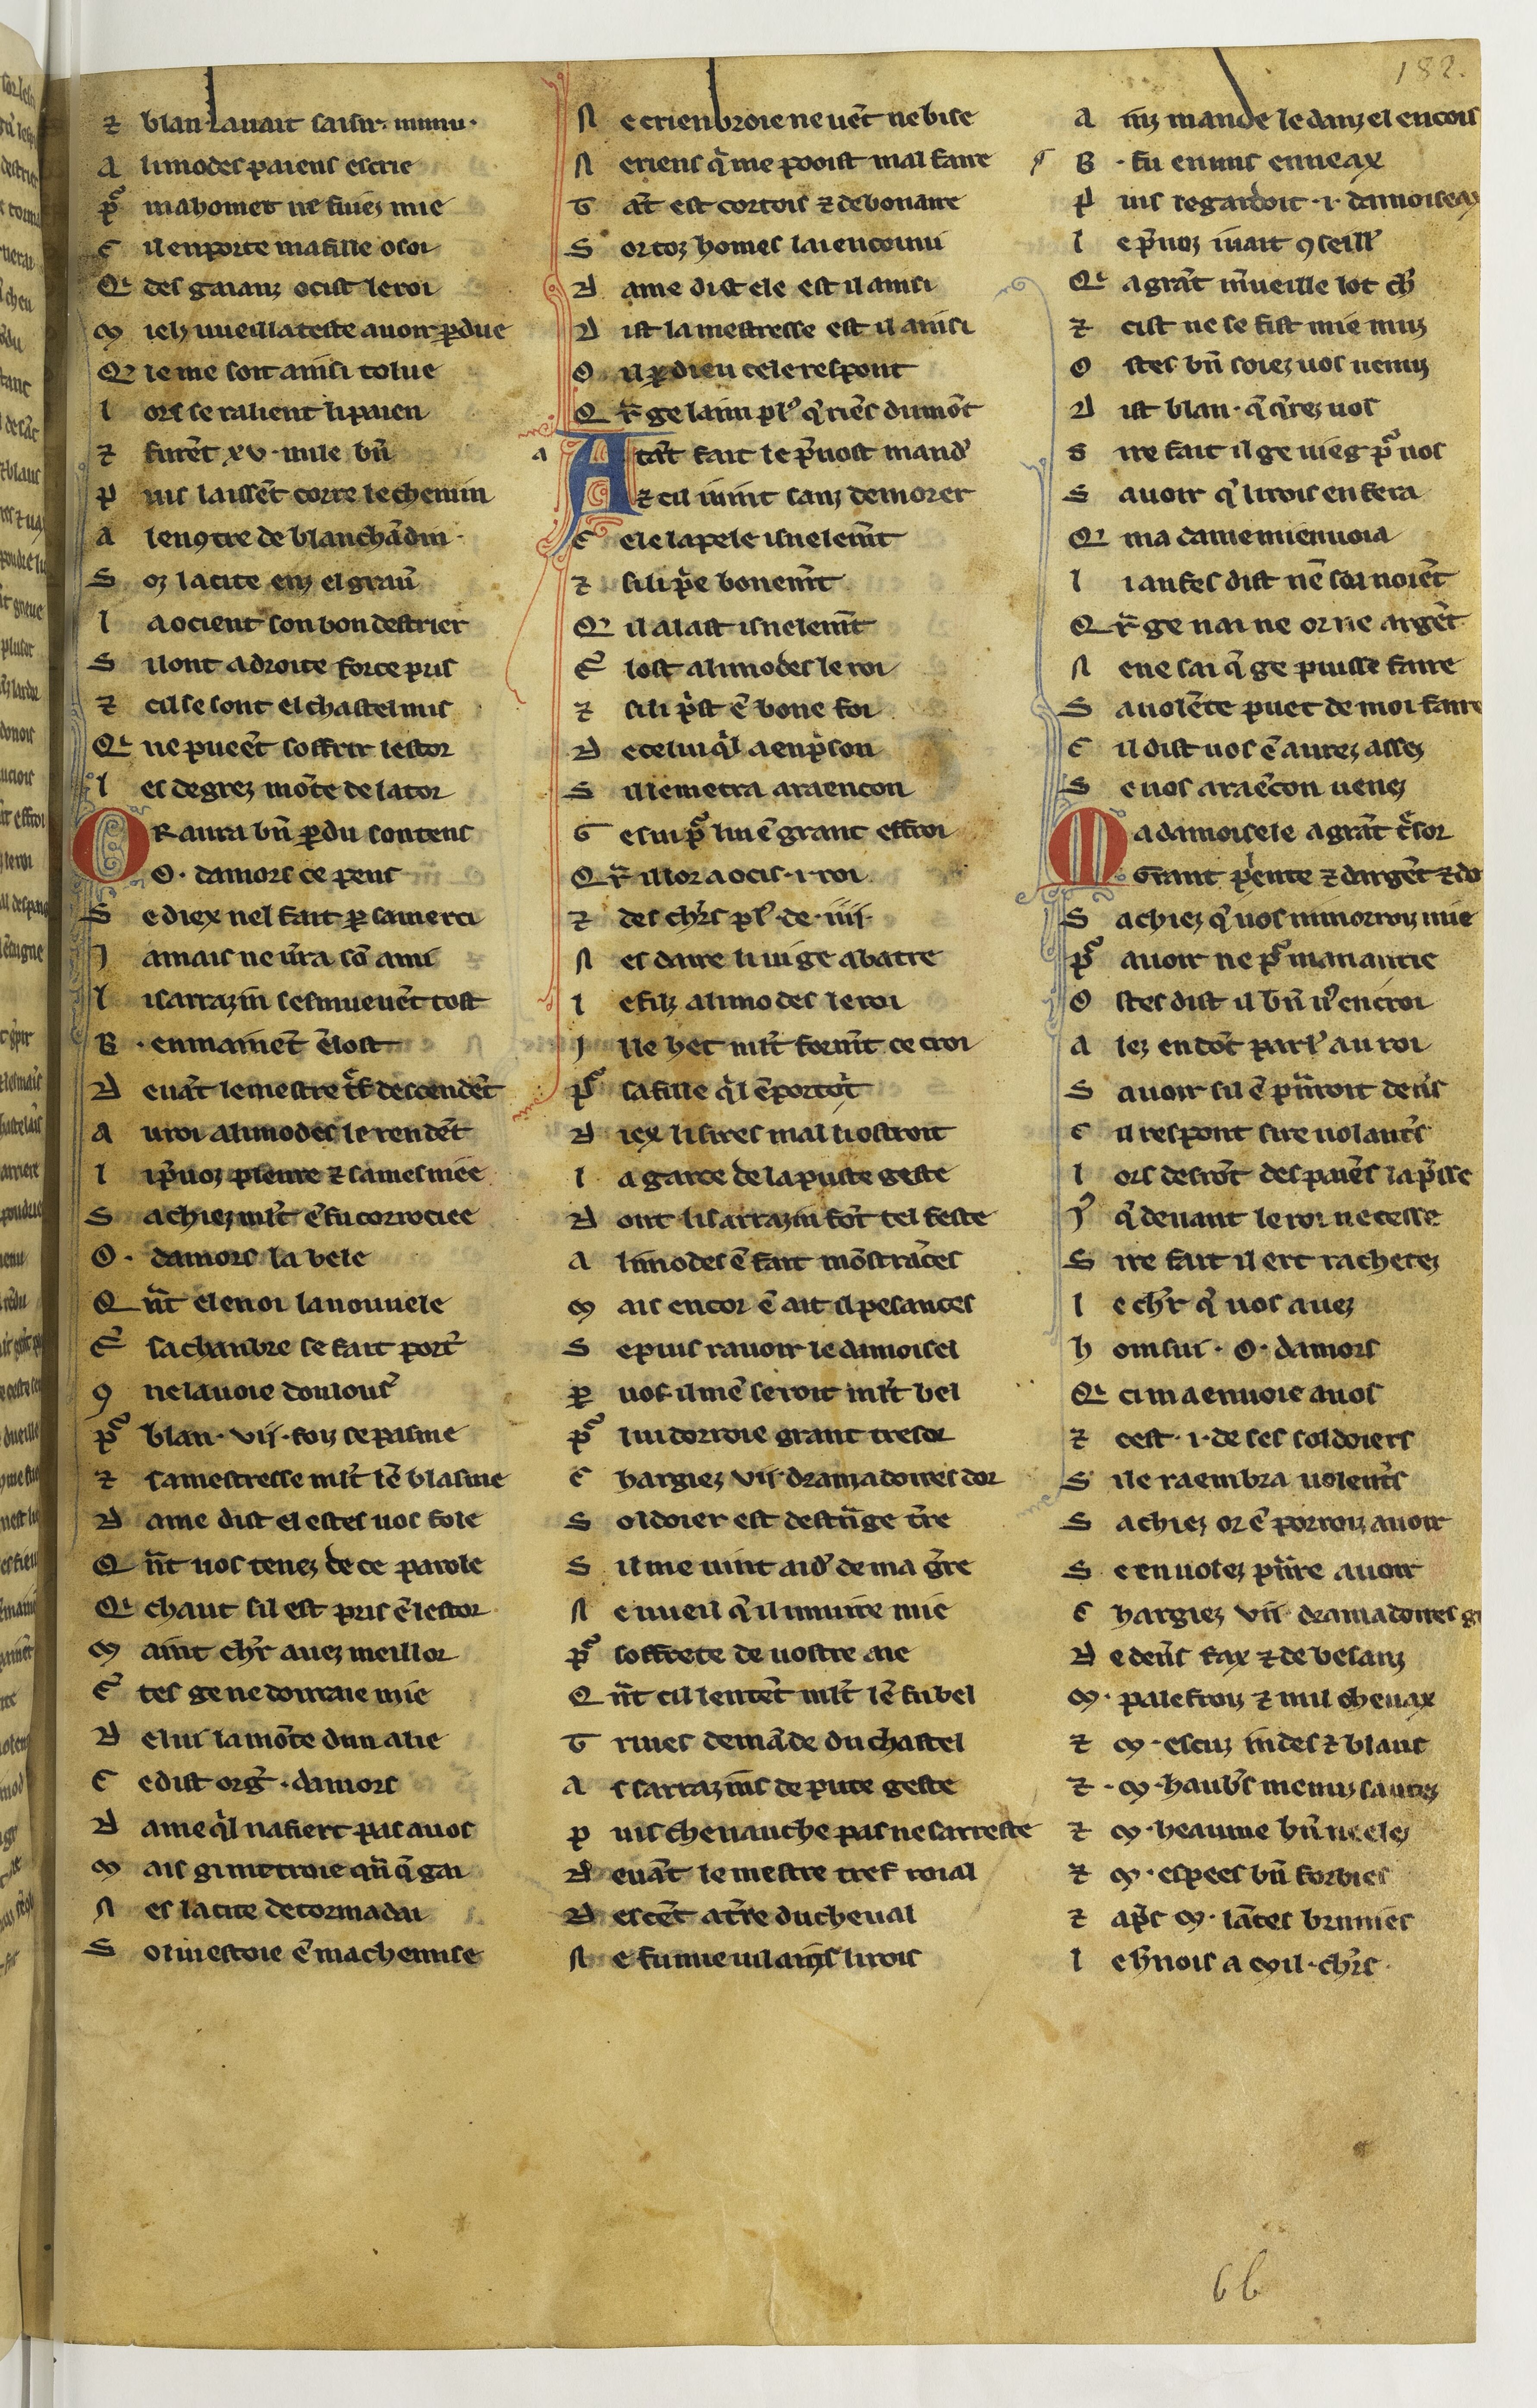 182.
⁊ blan lauait saisir
A limodes paiens escrie
p᷑ mahomet ne fuiez mie
C il enporte ma fille o soi
Qi des gaianz ocist le roi
M ielz uueil la teste auoir ꝑdue
Qe ie me soit ainsi tolue
L ors se ralient li paien
⁊ furēt xv. mile bn̄
P uis laissēt corre le chemin
A lencōtre de blanchādin
S oz la cite enz el grau᷑
L a ocient son bon destrier
S il ont a droite force pris
⁊ cil se sont el chastel mis
Qi ne pueēt soffrir lestor
L es degrez mōte de la tor
OR aura bn̄ ꝑdu son tens
O. damors ce pens
S e diex nel fait ꝑ sa merci
J amais ne ura sō ami
L i sarrazin sesmueuēt tost
B. enmainēt ē lost
D euāt le mestre tref descendēt
A u roi alimodes le rendēt
L i p᷑uoz pleure ⁊ sa mesniee
S achiez ml̄t ē fu corrociee
O. damors la bele
Q n̄t el en oi la nouuele
E᷑ sa chambre se fait port᷑
ꝯ ne la uoie doulous᷑
p᷑ blan. vij. foiz se pasme
⁊ sa mestresse ml̄t lē blasme
D ame dist el estes uos fole
Q n̄t uos tenez de ce parole
Qi chaut sil est pris ē lestor
M aint ch᷑r auez meillor
E᷑ tes ge ne dorraie mie
D e lui la mōte dun alie
C e dist org᷑. damors
D ame ql̄ nafiert pas a uos
M ais gi metroie qn̄ q᷑ gai
N es la cite de tormadai
S ol iuestoie ē ma chemise
N e crienbroie ne uēt ne bise
N e riens q᷑ me poist mal faire
T āt est cortois ⁊ debonaire
S or toz homes lai encoiui
D ame dist ele est il ainsi
D ist la mestresse est il ainsi
O il ꝑ dieu cele respont
Q r̄ ge laim pl᷒ q᷑ riēs du mōt
a
A tāt fait le p᷑uost mand᷑
⁊ cil i uint sanz demorer
C ele lapele isnelemt̄
⁊ si li p᷑e bonemt̄
Q il alast isnelemt̄
E᷑ lost alimodes le roi
⁊ si li p᷑st ē bone foi
D e celui ql̄ a en p᷑son
S il le metra a raencon
G e sui p᷑ lui ē grant effroi
Q r̄ il lor a ocis .i. roi
⁊ des ch᷑rs pl᷒ de .iiij.
N es daire li ui ge abatre
L e filz alimodes le roi
J l le het ml̄t formt̄ ce croi
p᷑ sa fille ql̄ ēportoit
D iex li sires mal li ostroit
L a garce de la puite geste
D ont li sarrazin fōt tel feste
A limodes ē fait mōstrāces
M ais encor ē ait il pesances
S e puis rauoir le damoisel
P or uos il mē seroit ml̄t bel
p᷑ lui dorroie grant tresor
C hargiez vii. dramadoires dor
S oldoier est destrāge tr̄re
S il me uint aid᷑ de ma gr̄re
N e uueil q᷑ il muire mie
p᷑ soffrete de uostre aie
Q n̄t cil lentēt ml̄t lē fu bel
T riues demāde du chastel
A s sarrazins de pute geste
P uis cheuauche pas ne sarreste
D euāt le mestre tref roial
D escēt a tr̄re du cheual
N e fu mie uilains li rois
A inz mande le danzel encois
B. fu en uns enneax
P uis regardoit .i. damoiseax
L e p᷑uoz i uait ꝯseill᷑
Qi a grāt m᷑ueille lot ch᷑
⁊ cist ne se fist mie muz
O stes bn̄ soiez uos uenuz
D ist blan. q̄ q᷑rez uos
S ire fait il ge uieg p᷑ uos
S auoir q᷑ li rois en fera
Q ma dame mi enuoia
L i anfes dist nē sai noiēt
Q r̄ ge nai ne or ne argēt
N e ne sai q᷑ ge puisse faire
S a uolēte puet de moi faire
C il dist uos ē aurez assez
S e uos a raēcon uenez
M a damoisele a grāt t᷑sor
Grant p᷑ente ⁊ dargēt ⁊ do
S achiez q᷑ uos ni morroiz mie
p᷑ auoir ne p᷑ manantie
O stes dist il bn̄ uō en croi
A lez en dōt parl᷑ au roi
S auoir sil ē pn̄roit den᷑s
C il respont sire uolāt᷑s
L ors desrōt des paiēs la p᷑sse
J q᷑ deuant le roi ne cesse
S ire fait il ert rachetez
L e ch᷑r q᷑ uos auez
H om sui. O. damors
Qi ci ma enuoie a uos
⁊ cest .i. de ses soldoiers
S i le raembra uolent᷑s
S achiez or ē porroiz auoir
S e en uolez pn̄re auoir
C hargiez vii dramadoires g
D e den᷑s fax ⁊ de besanz
M. palefroiz ⁊ mil cheuax
⁊ M. escuz indes ⁊ blans
⁊ .M. haub᷑s menuz safrez
⁊ M. heaume bn̄ neelez
⁊ M. espees bn̄ forbies
⁊ ap᷑s M. lāces brunies
L e h᷑nois a Mil. ch᷑rs
66